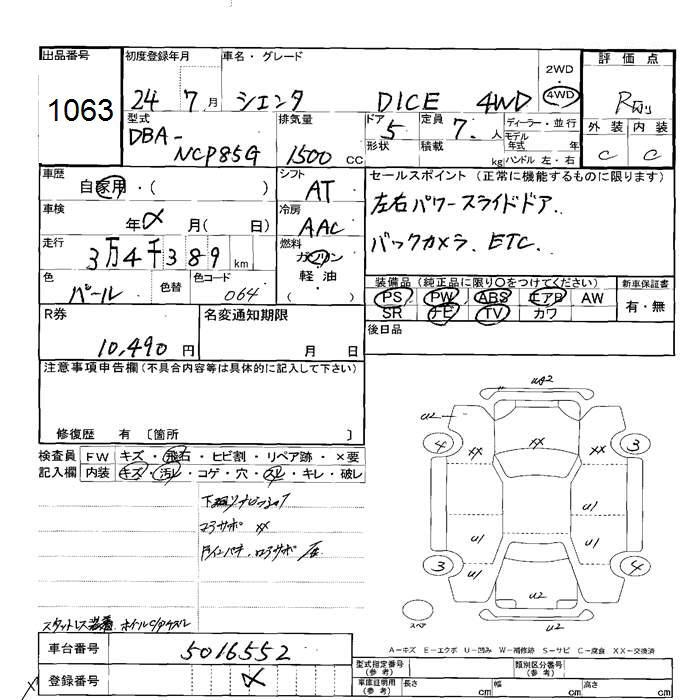 出品番号
1063
初度登録年月
24 7月
車名・グレード
シエンタ DICE 4WD
2WD
・
4WD
評価点
R
外装 内装
C C
型式
DBA-
NCP85G
排気量
1500 CC
ドア 5
形状
定員 7. 人
積載 kg
ディーラー・並行
モデル
年式 年
ハンドル 左・右
車歴
自家用・( )
シフト
AT
セールスポイント (正常に機能するものに限ります)
左右パワースライドドア.
バックカメラ. ETC.
車検
年 月( 日)
冷房
AAC
走行
3万4千389 km
燃料
ガソリン
軽油
( )
色
パール
色替
色コード
064
装備品 (純正品に限り○をつけてください)
PS PW ABS エアB AW
SR ナビ TV カワ
新車保証書
有・無
R券
10,490 円
名変通知期限
月 日
後日品
注意事項申告欄 (不具合内容等は具体的に記入して下さい)
修復歴 有 〔箇所 〕
検査員
記入欄
FW キズ・飛石・ヒビ割・リペア跡・×要
内装 キズ・汚レ・コゲ・穴・スレ・キレ・破レ
コアサポ XX
スタットレス
車台番号
5016552
登録番号
U2
U2
4
XX
XX
XX
3
U1
U1
U1
3
4
U2
U2
スペア
A-キズ E-エクボ U-凹み W-補修跡 S-サビ C-腐食 XX-交換済
型式指定番号
(参考)
類別区分番号
(参考)
車庫証明用
(参考)
長さ cm
幅 cm
高さ cm